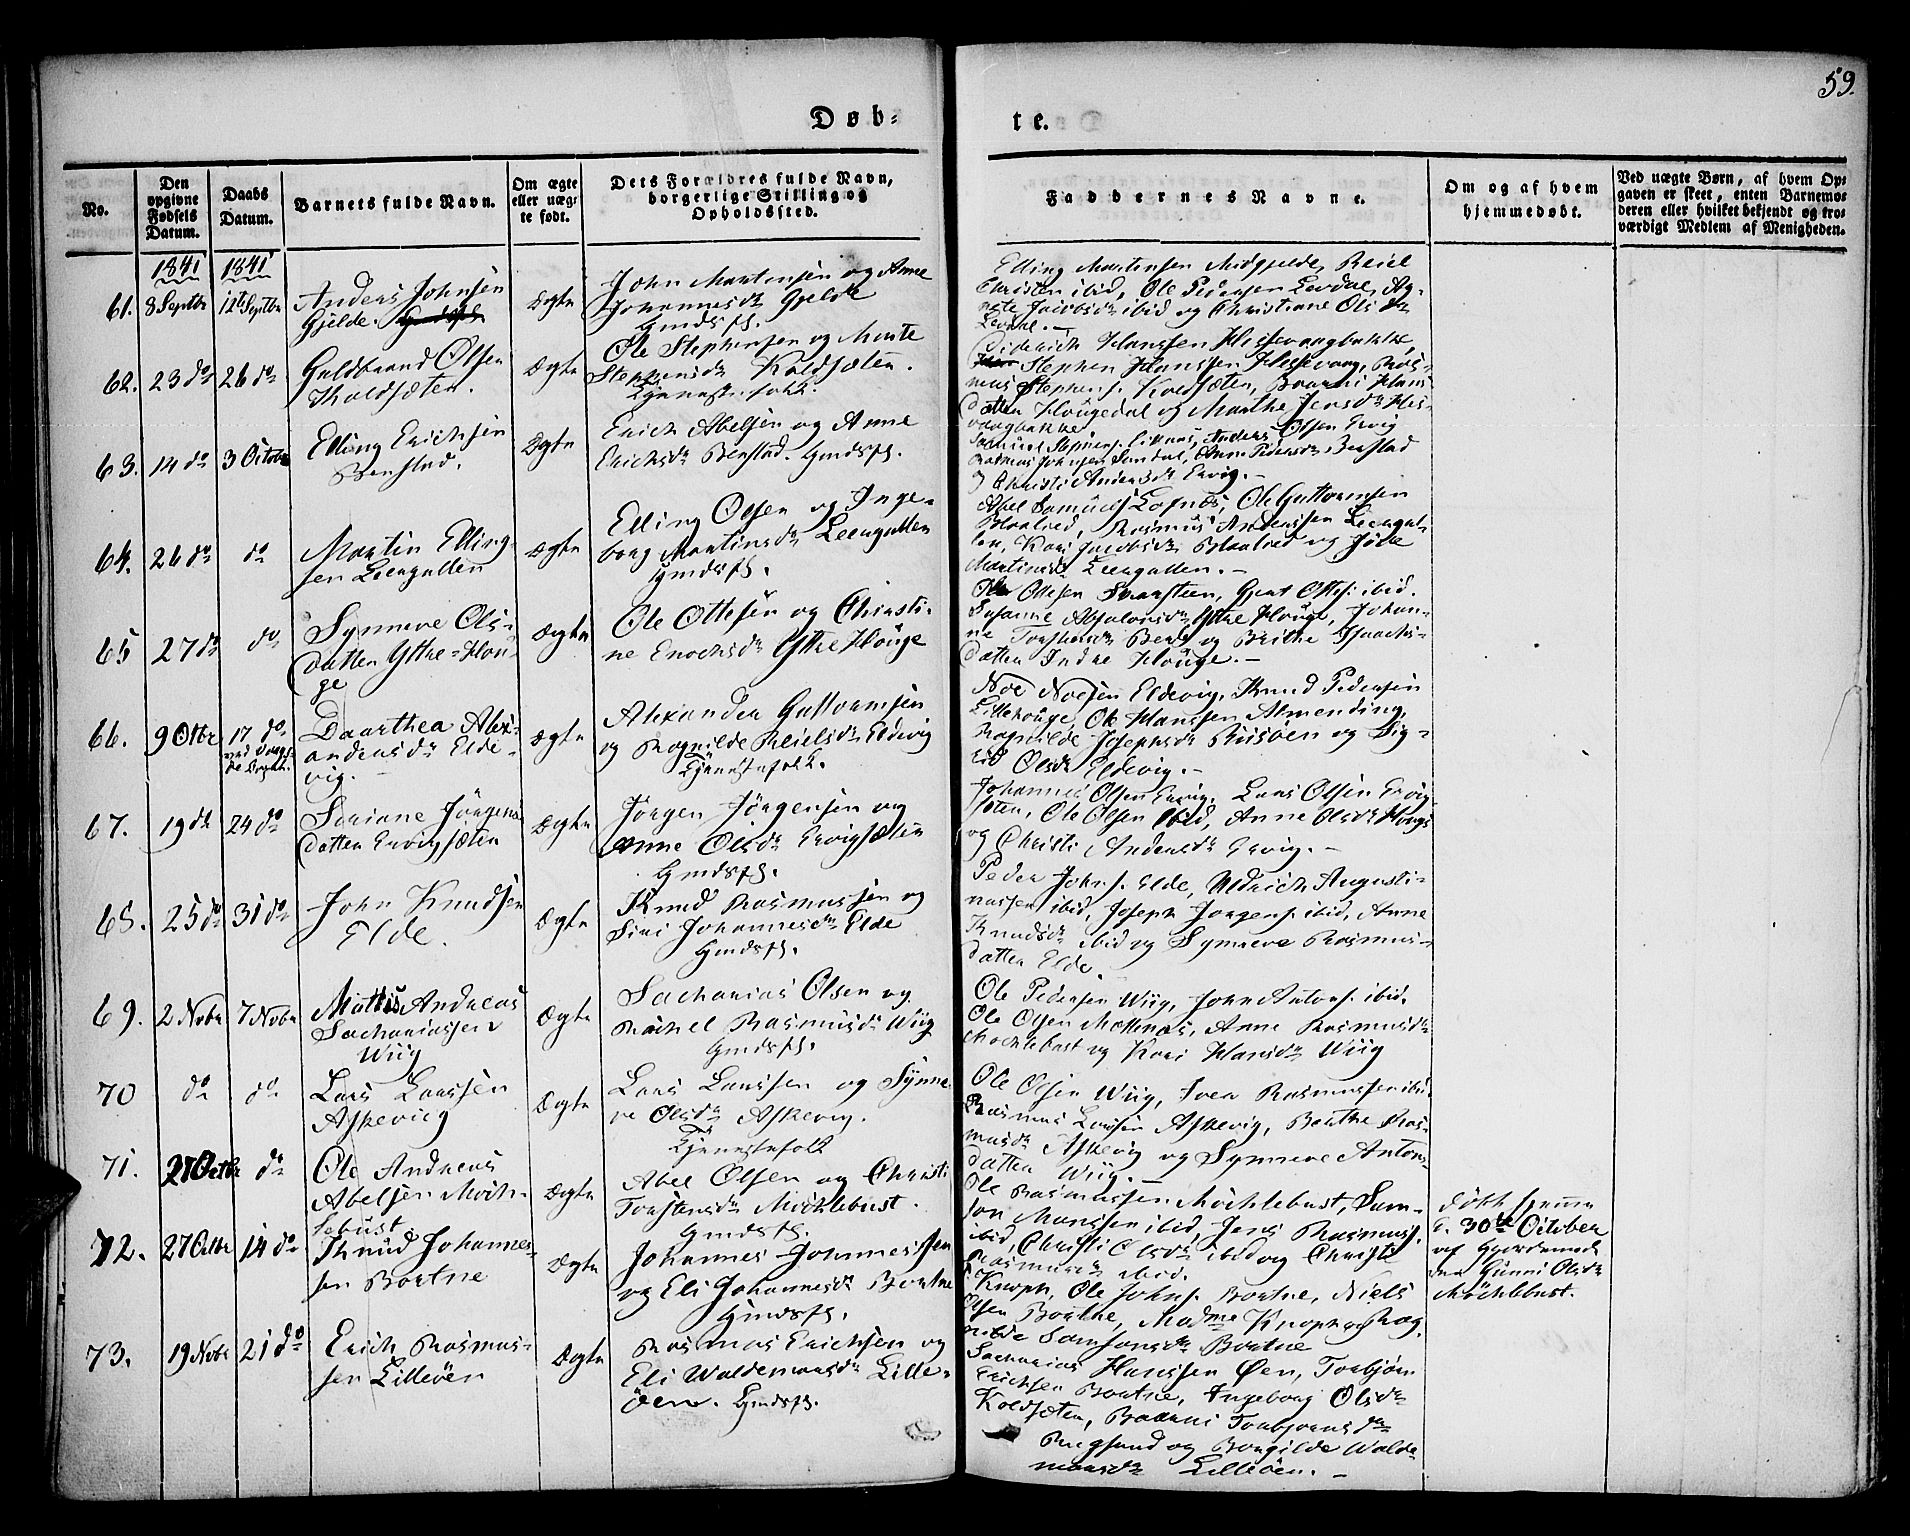 59.
Døb-
te.
No.
Den opgivne Fødsels Datum.
Daabs Datum.
Barnets fulde Navn.
Om ægte eller uægte født.
Dets Forældres fulde Navn, borgerlige Stilling og Opholdssted.
Faddernes Navne.
Om og af hvem hjemmedøbt.
Ved uægte Børn, af hvem Opgaven er skeet, enten Barnemoderen eller hvilket bekjendt og troværdigt Medlem af Menigheden.
1841 1841
61. 8 Septbr 12te Septbr
Anders Johnsen
Gjelde.
Ægte
John Martinsen og Anne
Johannesdr Gjelde
Gmdsfk.
Elling Martinsen Midgjelde, Reiel
Christen ibid, Ole Pedersen Levdal, Ag-
nete Jacobsdr ibid og Christiane Olsdr
Levdal.-
62. 23 do 26 do
Guldbrand Olsen
Koldsæten.
Ægte
Ole Stephensen og Marte
Stephensdr Koldsæten.
Tjenestefolk.
Diderich Hanssen Hessevaagbakke,
Stephen Hanssen Hessevaag, Ras-
mus Stephens. Koldsæten, Hans
datter Hougedal og Marthe Jensdr Hes-
vaagbakke
63. 14 do 3 Octobr
Elling Erichsen
Berstad.
Ægte
Erich Abelsen og Anne
Erichsdr Berstad Gmdsfk.
Anders Olsen Ervig
Rasmus Johnsen Sundal, Anne Pedersdr Berstad
og Christi Andersdr Ervig.-
64. 26 do do
Martin Elling-
sen Leengulten
Ægte
Elling Olsen og Inge-
borg Martinsdr Leengulten
Gmdsfk.
Abel Samuels. Lofnæs, Ole Guttormsen
Blaalid, Rasmus Anderssen Leengul-
ten, Kari Jacobsdr Blaalid og
Martinsdr Leengulten.-
65 27 do do
Synneve Ols-
datter Ytre-Hou-
ge
Ægte
Ole Ottesen og Christi-
ne Enochsdr Ytre Houge
Ole Ottesen Svarsteen, Ottes. ibid.
Susanne Absalonsdr Ytre Houge, Johan-
ne Torstensdr Berg og Brithe Isaachs-
datter Indre Houge.-
66. 9 Octbr 17 do
Daarthea Alex-
andersdr Elde-
vig.-
Ægte
Alexander Guttormsen
og Ragnilde Reielsdr Eldevig
Tjenestefolk.
Noe Noesen Eldevig, Knud Pedersen
Lillehouge, Ole Hanssen Almending,
Ragnilde Josephsdr Riisøen og Sig-
rid Olsdr Eldevig.-
67. 19 do 24 do
Seriane Jörgens-
datter Ervigsæten
Ægte
Jörgen Jörgensen og
Anne Olsdr Ervigsæten
Gmdsfk.
Johannes Olsen Ervig, Lars Olsen Ervig-
sæten, Ole Olsen ibid, Anne Olsdr
og Christi Andersdr Ervig.-
68. 25 do 31 do
John Knudsen
Elde.
Ægte
Knud Rasmussen og
Siri Johannesdr Elde
Gmdsfk.
Peder Johns. Elde, Uldrich Augusti-
nussen ibid, Joseph Jörgens. ibid, Anne
Knudsdr ibid og Synneve Rasmus-
datter Elde.
69. 2 Novbr 7 Novbr
Mattis Andreas
Sachariassen
Wiig
Ægte
Sacharias Olsen og
Rachel Rasmusdr Wiig
Gmdsfk.
Ole Pedersen Wiig, John Antons. ibid.
Ole Olsen Mættenæs, Anne Rasmusdr
Mochlebust og Kari Hansdr Wiig
70 do do
Lars Larssen
Askevig
Ægte
Lars Larssen og Synne-
ve Olsdr Askevig.
Tjenestefolk
Ole Olsen Wiig, Iver Rasmussen ibid.
Rasmus Larsen Askevig, Berthe Ras-
musdr Askevig og Synneve Antons-
datter Wiig.-
71. 27 Octbr do
Ole Andreas
Abelsen Möch-
lebust
Ægte
Abel Olsen og Christi
Torstensdr Möchlebust.
Gmdsfk.
Ole Rasmussen Möchlebust, Sam-
son Monssen ibid, Jens Rasmuss.
ibid, Christi Olsdr ibid og Christi
Rasmusdr ibid.
Döbt hjemme
d. 30te October
af Gjordemod-
der Gunni Olsdr
Möchlebust.
72. 27 Octbr 14 do
Knud Johannes-
sen Bortne
Ægte
Johannes Johannessen
og Eli Johannesdr Bortne
Gmdsfk.
Knoph, Ole Johns. Bortne, Niels
Olsen Bortne, Madme Knoph og Rag-
nilde Samsonsdr Bortne
73. 19 Novbr 21 do
Erich Rasmus-
sen Lilleöen
Ægte
Rasmus Erichsen og
Eli Waldemarsdr Lille-
öen. Gmdsfk.
Sacharias Hanssen Øen, Torbjörn
Erichsen Bortne, Ingeborg Olsdr
Koldsæten, Torbjörnsdr
Rugsund og Borgilde Walde-
marsdr Lilleöen.-